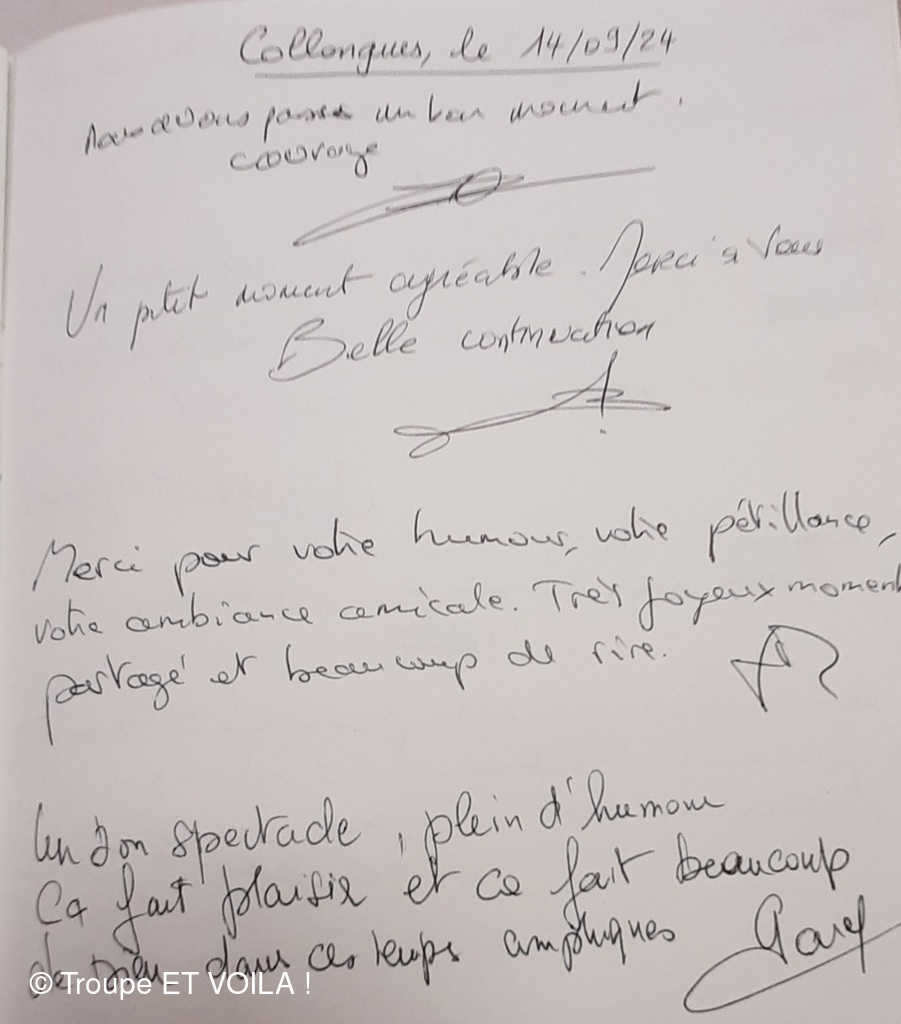 Collongues, le 14/09/24
Nous avons passé un bon moment.
courage
Un ptit moment agréable. Merci à vous
Belle continuation
Merci pour votre humour, votre pétillance,
votre ambiance amicale. Très joyeux moment
partagé et beaucoup de rire.
Un bon spectacle, plein d'humour
Ça fait plaisir et ce fait beaucoup
de bien dans ces temps
© Troupe ET VOILA !